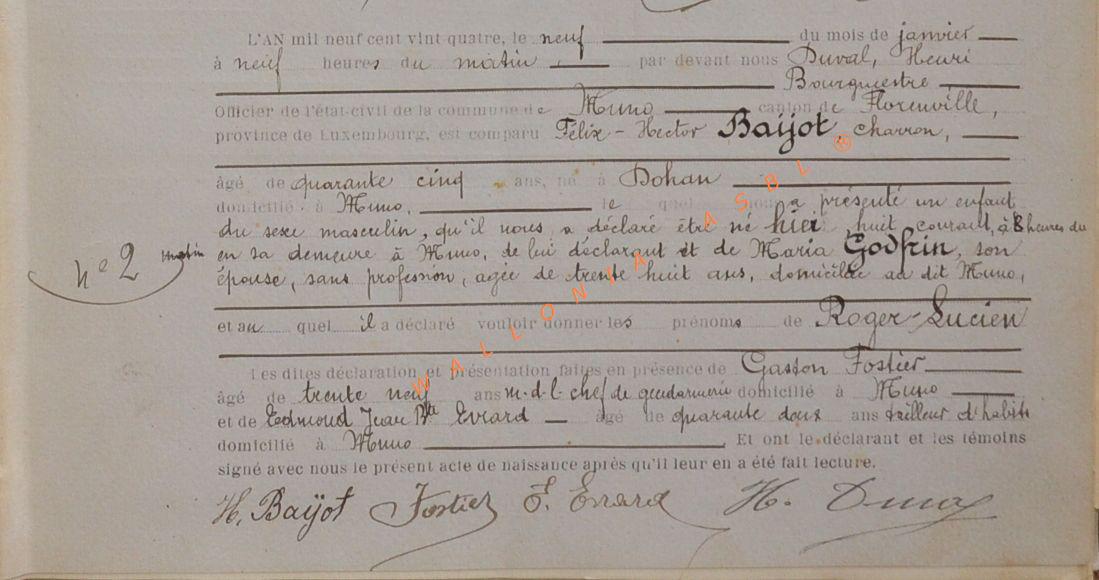 L'AN mil neuf cent vint-quatre, le neuf du mois de janvier
à neuf heures du matin, par devant nous Duval, Henri
Bourgmestre
Officier de l'état-civil de la commune de Muno canton de Florenville,
province de Luxembourg, est comparu Félix-Hector Baijot, charron,
âgé de quarante cinq ans, né à Dohan
domicilié à Muno, le quel nous a présenté un enfant
du sexe masculin, qu'il nous a déclaré être né hier huit courant, à 8 heures du
matin en sa demeure à Muno, de lui déclarant et de Maria Godfrin, son
N° 2
épouse, sans profession, agée de trente huit ans, domiciliée au dit Muno,
et au quel il a déclaré vouloir donner les prénoms de Roger-Lucien
Les dites déclaration et présentation faites en présence de Gaston Fostier
âgé de trente neuf ans m.d.l. chef de gendarmerie domicilié à Muno
et de Edmond Jean Bte Evrard âgé de quarante deux ans tailleur d'habits
domicilié à Muno Et ont le déclarant et les témoins
signé avec nous le présent acte de naissance après qu'il leur en a été fait lecture.
H. Baijot Fostier E. Evrard H. Duval
WALLONIA ASBL ®